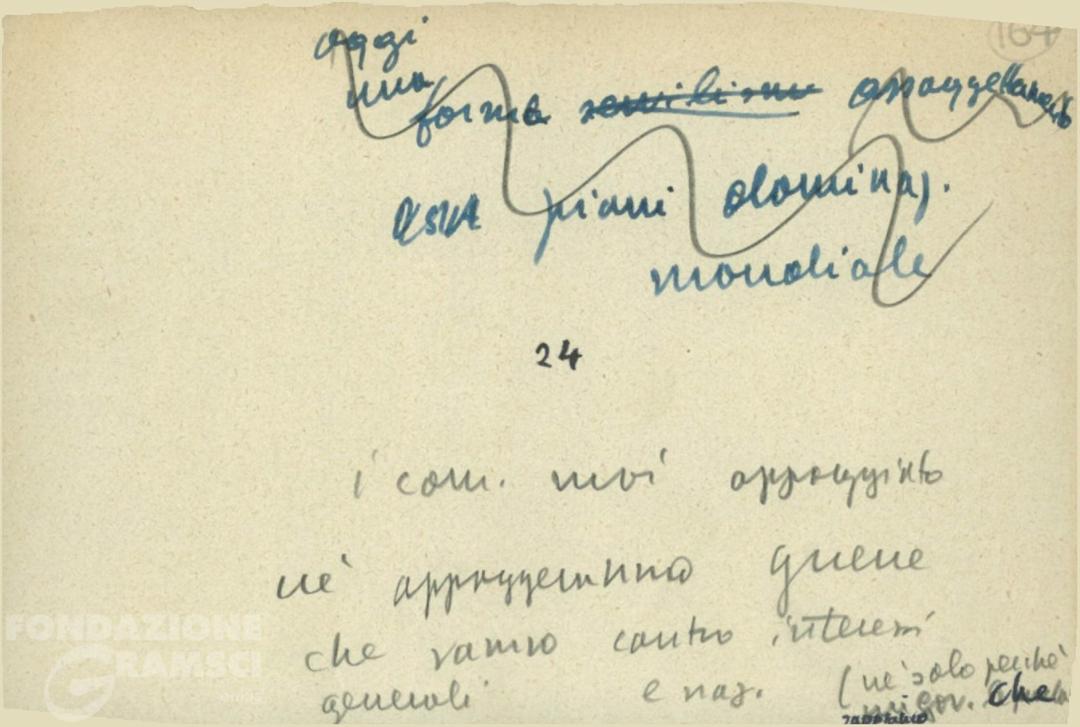 164
oggi
una
forma servilismo appoggettamento
piani dominaz.
mondiale
24
i com. mai appoggiato
nè appoggeranno guerre
che vanno contro interessi
generali e naz. (nè solo perchè
gov. che
FONDAZIONE
GRAMSCI